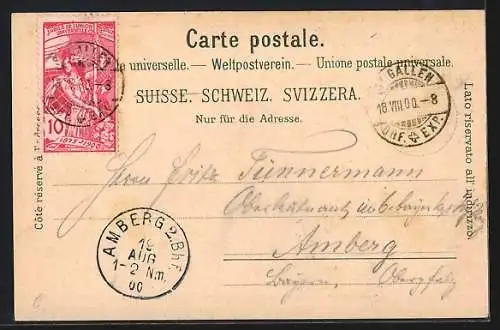 Carte postale.
universelle. — Weltpostverein. — Unione postale universale.
SUISSE. SCHWEIZ. SVIZZERA.
Nur für die Adresse.
Côté réservé à l'adresse
Lato riservato all'indirizzo.
10
GALLEN
18 VIII 00.–8
EXP.
Herrn Fritz Tünnermann
Amberg
Bayern, Oberpfalz
AMBERG 2. Bhf.
19
AUG
1-2 Nm.
00